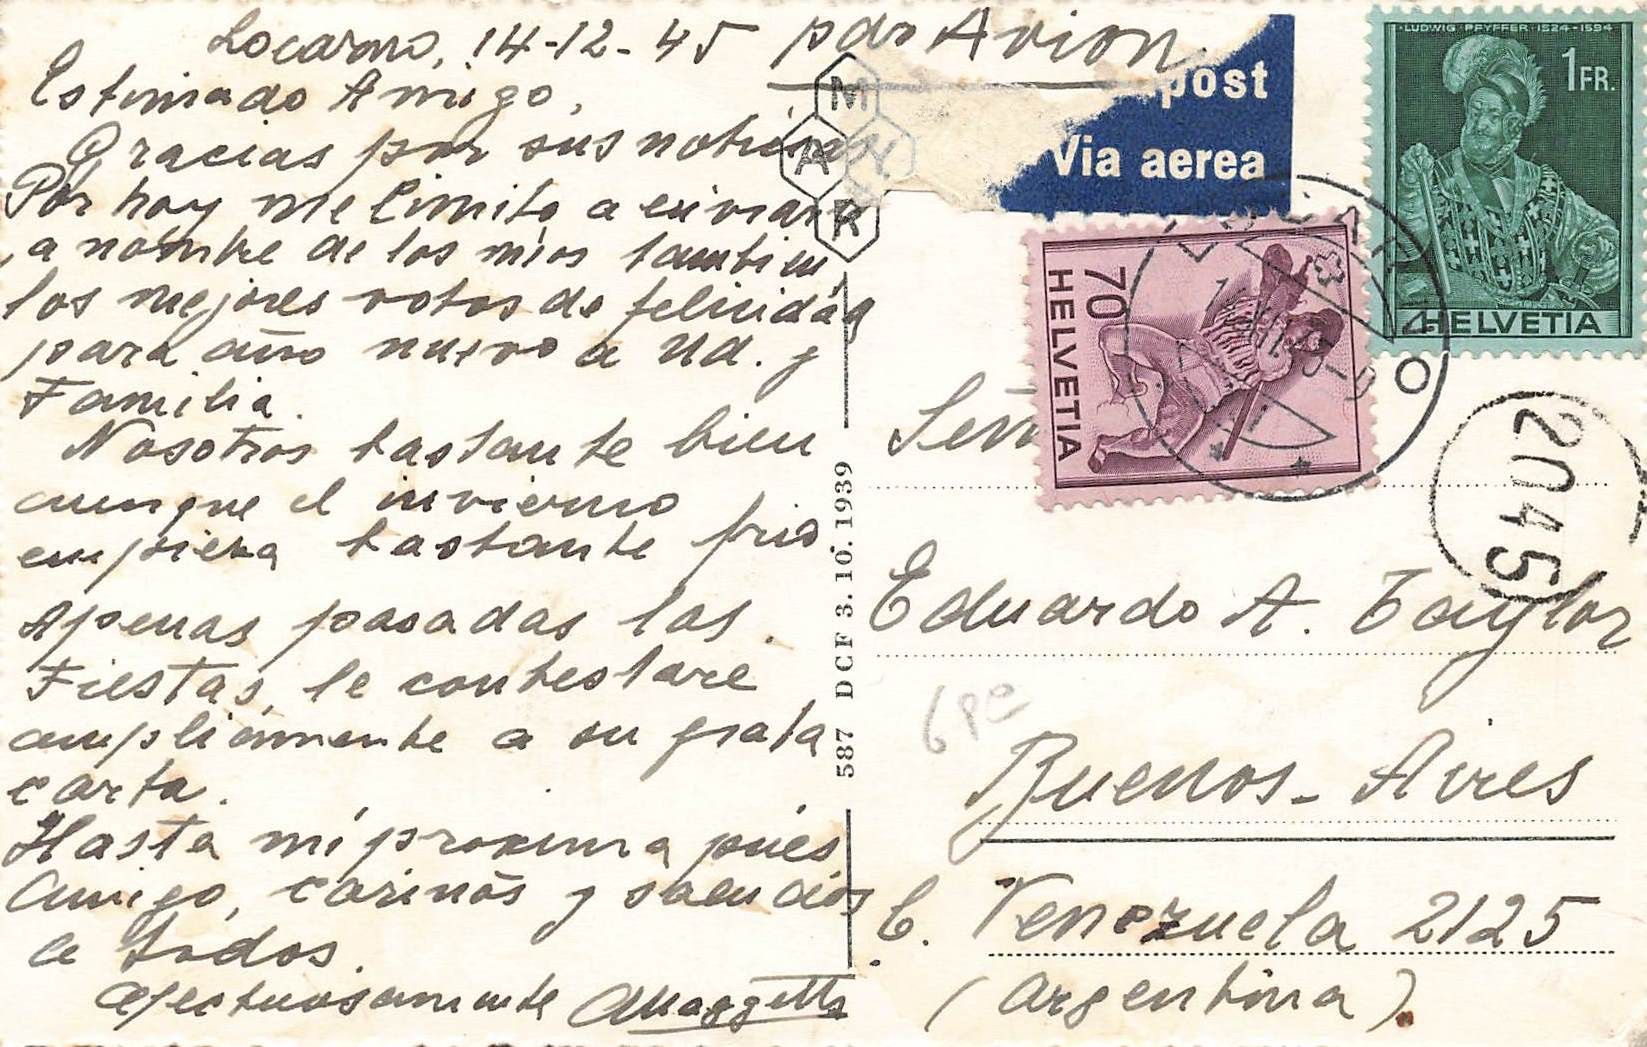 Locarno, 14-12-45
por Avion
Estimado Amigo,
Gracias por sus noticias
Por hoy me limito a enviarle
a nombre de los mios tambien
los mejores votos de felicidad
para año nuevo a Ud. y
Familia.
Nosotros bastante bien
aunque el invierno
empieza bastante frio
Apenas pasadas las
Fiestas, le contestare
ampliamente a su grata
carta.
Hasta mi proxima pues
Amigo, cariños y saludos
a todos.
afectuosamente
MAR
587 DCF 3.10.1939
post
Via aerea
LUDWIG PFYFFER·1524-1594
1 FR.
HELVETIA
70
HELVETIA
2045
Señ
Eduardo A. Taylor
6 pe
Buenos-Aires
C. Venezuela 2125
(Argentina).